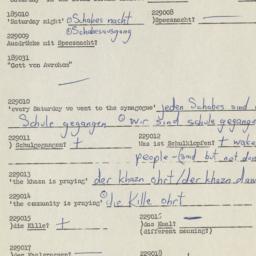 185010
'Saturday night' Schabes nacht
229008
) Speesnacht?
Schabesausgang
229009
Ausdrücke mit Speesnacht?
189031
"Gott von Avrohom"
229010
'every Saturday we went to the synagogue' jeden Schabes sind
Schule gegangen wir sind schule gegangen
229011
) Schulgegangen? +
229012
Was ist Schulklopfen? + wake
people - and but not
229013
'the khazn is praying' der khazn ohrt / der khazn
229014
'the community is praying' die Kille ohrt
229015
) die Kille? +
229016
) das Kaal?
(different meaning?)
229017